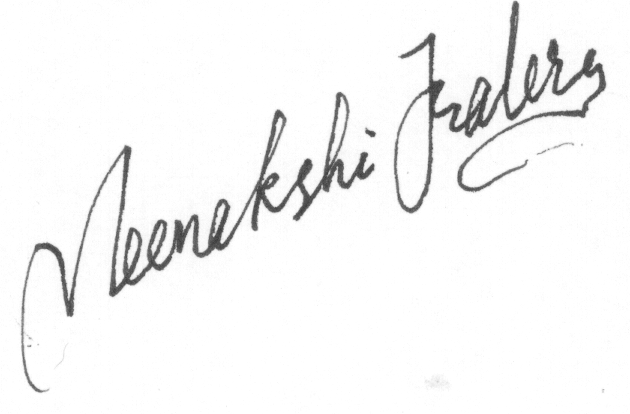 Meenakshi Traders